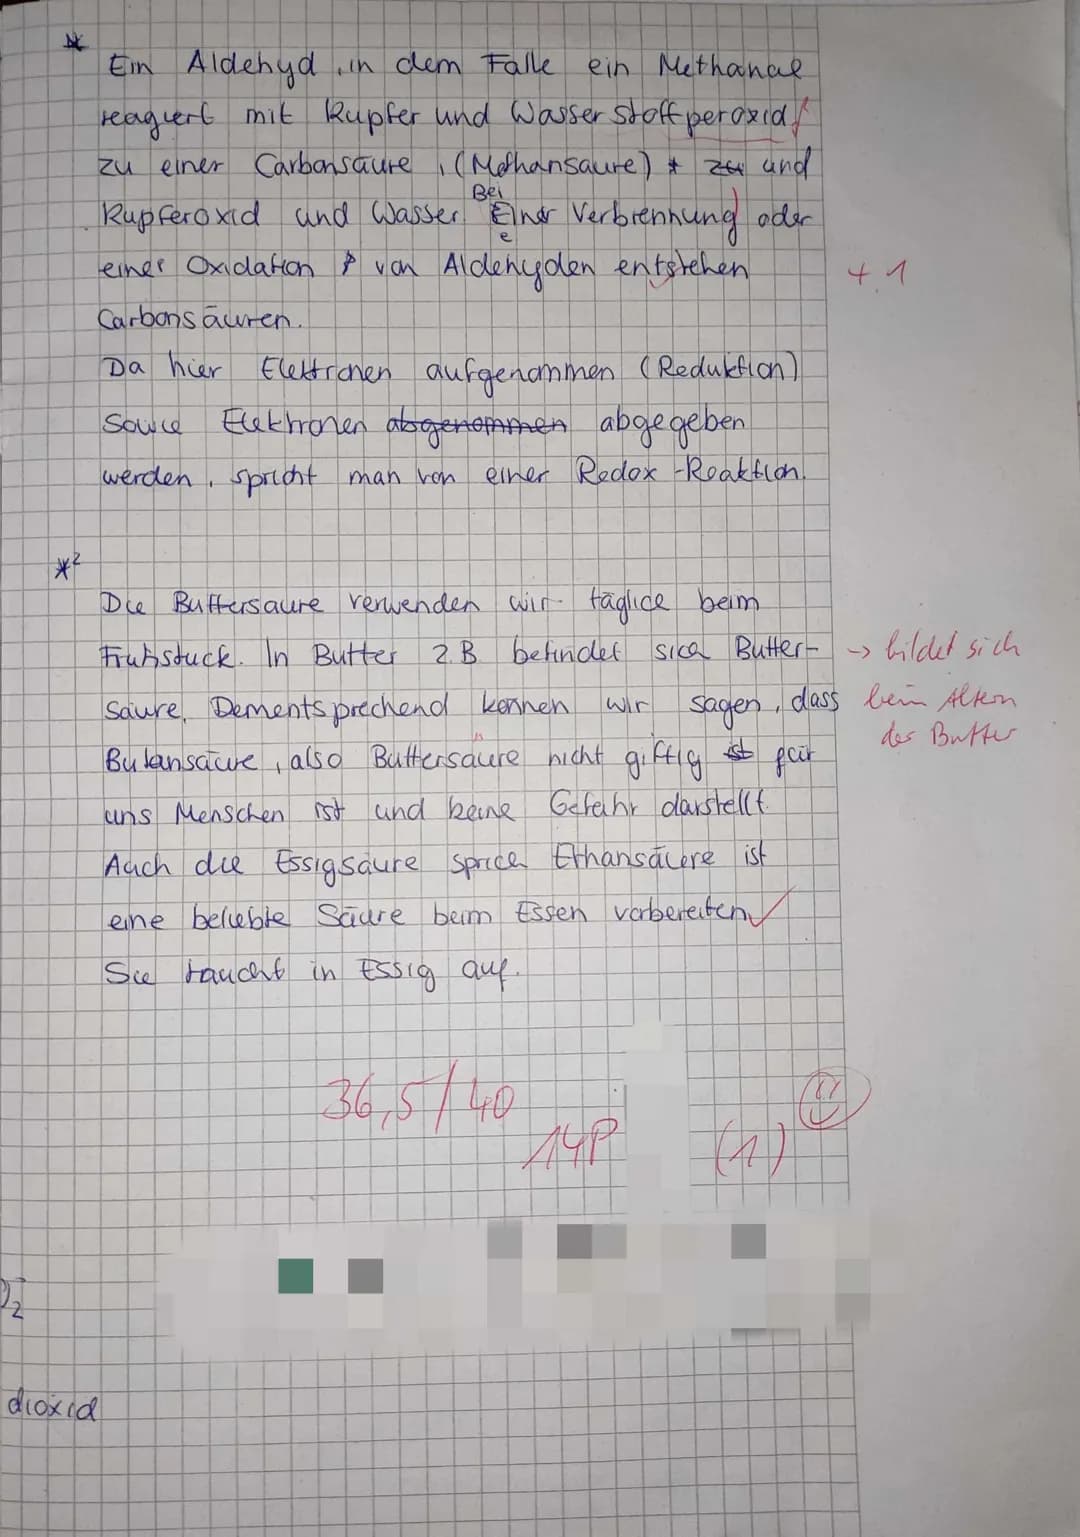 *
Ein Aldehyd, in dem Falle ein Methanal
reagiert mit Kupfer und Wasserstoffperoxid
zu einer Carbonsäure, (Methansäure) * zu und
Kupferoxid und Wasser. Bei Einer Verbrennung oder
einer Oxidation von Aldehyden entstehen
+ 1
Carbonsäuren.
Da hier Elektronen aufgenommen (Reduktion)
Sowie Elektronen abgenommen abgegeben
werden, spricht man von einer Redox-Reaktion.
*2
Die Buttersäure verwenden wir täglich beim
Frühstück. In Butter z.B. befindet sich Butter-
→ bildet sich
säure. Dementsprechend können wir sagen, dass
beim Altern
der Butter
Butansäure, also Buttersäure nicht giftig ist für
uns Menschen ist und keine Gefahr darstellt.
Auch die Essigsäure sprich Ethansäure ist
eine beliebte Säure beim Essen vorbereiten.
Sie taucht in Essig auf.
36,5/40
14P (1)
2
dioxid